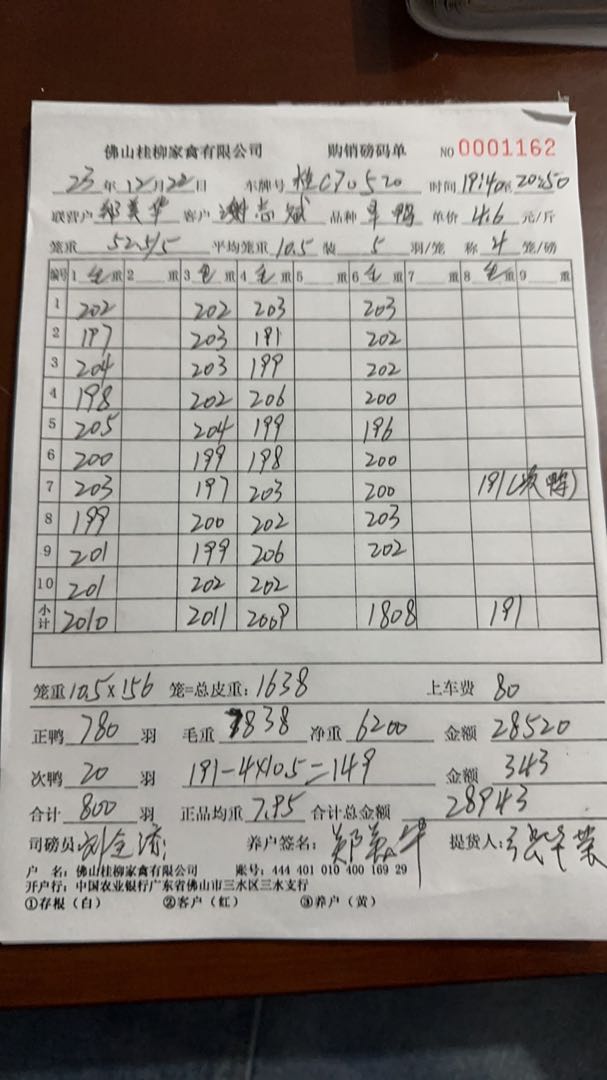 佛山桂柳家禽有限公司 购销磅码单 NO 0001162
23年12月22日 车牌号 桂C70520 时间 19:40至20:50
联营户 郑美华 客户 谢志斌 品种 单价 4.6 元/斤
笼重 52.5/5 平均笼重 10.5 装 5 羽/笼 称 4 笼/磅
编号 1 毛 重 2 重 3 毛 重 4 毛 重 5 重 6 毛 重 7 重 8 毛 重 9 重
1 202 202 203 203
2 197 203 191 202
3 204 203 199 202
4 198 202 206 200
5 205 204 199 196
6 200 199 198 200
7 203 197 203 200 191(次鸭)
8 199 200 202 203
9 201 199 206 202
10 201 202 202
小计 2010 2011 2009 1808 191
笼重 10.5×156 笼=总皮重: 1638 上车费 80
正鸭 780 羽 毛重 7838 净重 6200 金额 28520
次鸭 20 羽 191-4×10.5=149 金额 343
合计 800 羽 正品均重 7.95 合计总金额 28943
司磅员 养户签名: 郑美华 提货人:
户 名: 佛山桂柳家禽有限公司 账号: 444 401 010 400 169 29
开户行: 中国农业银行广东省佛山市三水区三水支行
①存根(白) ②客户(红) ③养户(黄)